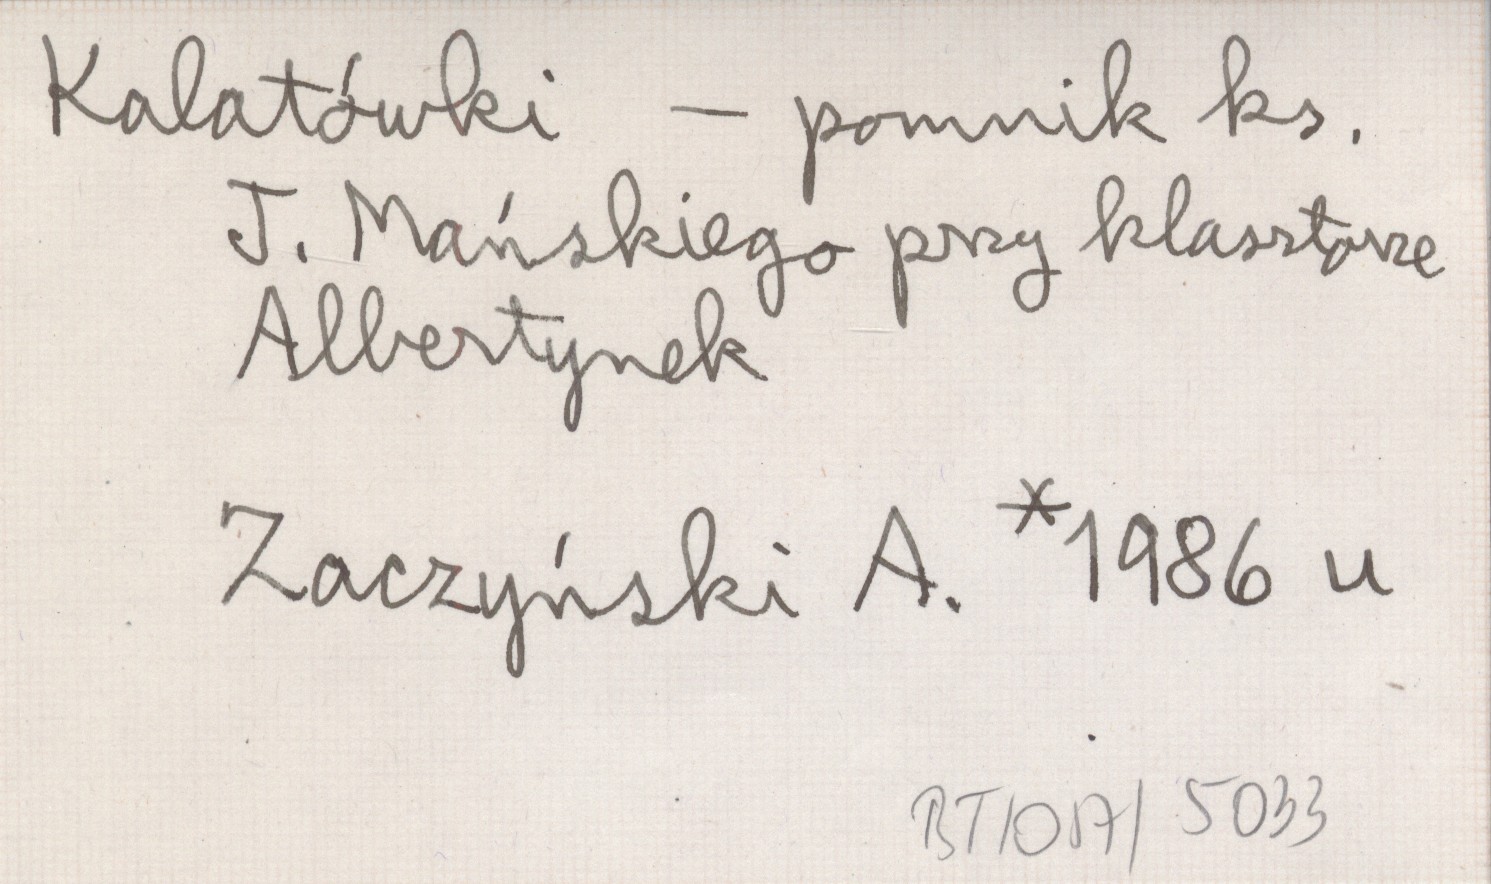 Kalatówki – pomnik ks.
J. Mańskiego przy klasztorze
Albertynek
Zaczyński A. *1986 u
BT/017/ 5033